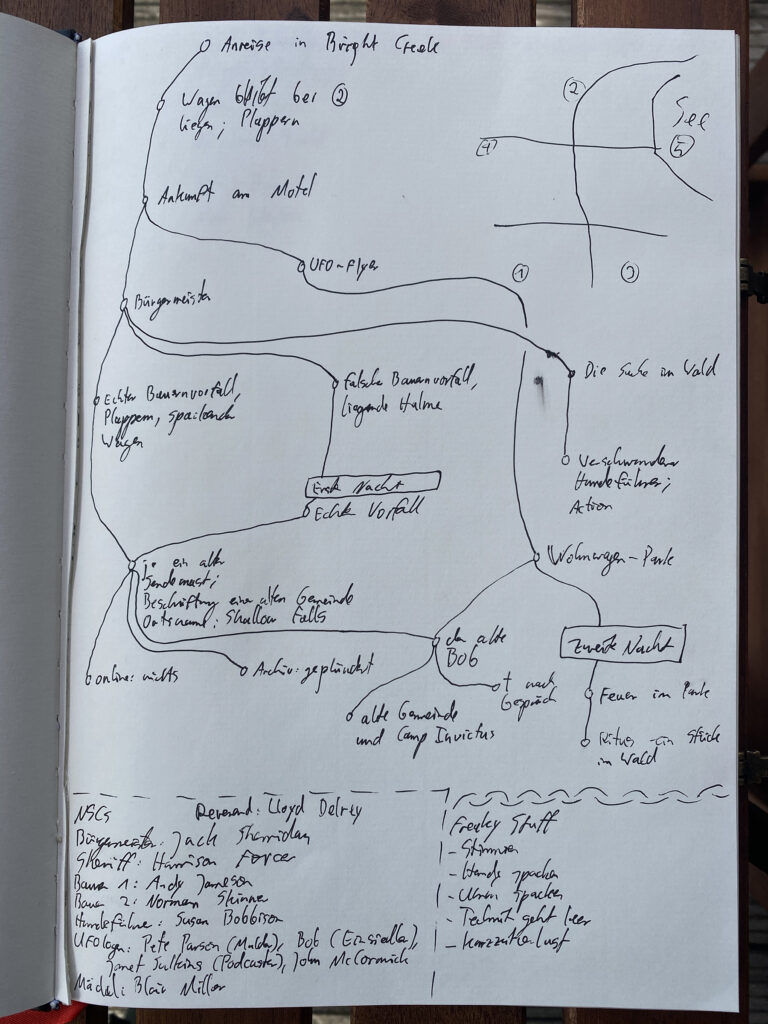 Anreise in Bright Creek
Wagen bleibt bei ②
liegen; Plappern
②
See
④
⑤
Ankunft am Motel
UFO-Flyer
①
③
Bürgermeister
Echter Bauernvorfall,
Plappern,
Wagen
Falscher Bauernvorfall,
liegende Halme
Die Suche im Wald
Verschwundener
Hundeführer;
Action
Erste Nacht
Echter Vorfall
Wohnwagen-Park
je ein alter
Sendemast;
Beschriftung einer alten Gemeinde
Ortsname: Shallow Falls
Zweite Nacht
der alte
Bob
online: nichts
Archiv: geplündert
† nach
Gespräch
Feuer im Park
alte Gemeinde
und Camp Invictus
Ritus - ein Stück
im Wald
NSCs Reverend: Lloyd Delrey
Bürgermeister: Jack Sherridan
Sheriff: Harrison Forcer
Bauer 1: Andy Jameson
Bauer 2: Norman Skinner
Hundeführer: Susan Bobbison
UFOlogen: Pete Parson (Mulder), Bob (Einsiedler),
Janet (Podcaster), John McCormick
Mädel: Blair Miller
Freaky Stuff
- Stimmen
- Handys spacken
- Uhren spacken
- Technik geht leer
- Kurzzeitverlust